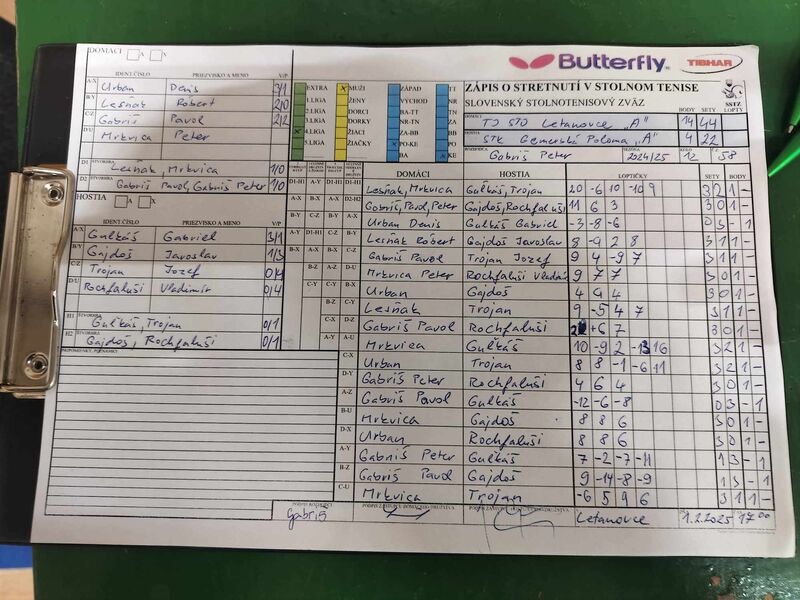 DOMÁCI A X
IDENT.ČÍSLO PRIEZVISKO A MENO V/P
A-X Urban Denis 3/1
B-Y Lesňák Róbert 2/0
C-Z Gabriš Pavol 2/2
D-U Mrkvica Peter
D1 ŠTVORHRA Lesňák, Mrkvica 1/0
D2 Gabriš Pavol, Gabriš Peter 1/0
HOSTIA A X
IDENT.ČÍSLO PRIEZVISKO A MENO V/P
A-X Gulkáš Gabriel 3/1
B-Y Gajdoš Jaroslav 1/3
C-Z Trojan Jozef 0/4
D-U Rochfaluši Vladimír 0/4
H1 ŠTVORHRA Gulkáš, Trojan 0/1
H2 Gajdoš, Rochfaluši 0/1
PRIPOMIENKY, POZNÁMKY
EXTRA
1.LIGA
2.LIGA
3.LIGA
4.LIGA
5.LIGA
MUŽI
ŽENY
DORCI
DORKY
ŽIACI
ŽIAČKY
ZÁPAD
VÝCHOD
BA-TT
NR-TN
ZA-BB
PO-KE
BA
TT
NR
TN
ZA
BB
PO
KE
Butterfly
TIBHAR
ZÁPIS O STRETNUTÍ V STOLNOM TENISE
SLOVENSKÝ STOLNOTENISOVÝ ZVÄZ
SSTZ
BODY SETY LOPTY
DOMÁCI TJ STO Letanovce "A" 14 44
HOSTIA STK Gemerská Poloma "A" 4 22
ROZHODCA Gabriš Peter SEZÓNA 2024/25 KOLO 12 Č.Z. 58
DOMÁCI HOSTIA LOPTIČKY SETY BODY
Lesňák, Mrkvica Gulkáš, Trojan 20 -6 10 -10 9 3 2 1 -
Gabriš, Pavol, Peter Gajdoš, Rochfaluši 11 6 3 3 0 1 -
Urban Denis Gulkáš Gabriel -3 -8 -6 0 3 - 1
Lesňák Róbert Gajdoš Jaroslav 8 -9 2 8 3 1 1 -
Gabriš Pavol Trojan Jozef 9 4 -9 7 3 1 1 -
Mrkvica Peter Rochfaluši Vladimír 9 7 7 3 0 1 -
Urban Gajdoš 4 4 4 3 0 1 -
Lesňák Trojan 9 -5 4 7 3 1 1 -
Gabriš Pavol Rochfaluši +6 7 3 0 1 -
Mrkvica Gulkáš 10 -9 2 -13 16 3 2 1 -
Urban Trojan 8 8 -1 -6 11 3 2 1 -
Gabriš Peter Rochfaluši 4 6 4 3 0 1 -
Gabriš Pavol Gulkáš -12 -6 -8 0 3 - 1
Mrkvica Gajdoš 8 8 6 3 0 1 -
Urban Rochfaluši 8 8 6 3 0 1 -
Gabriš Peter Gulkáš 7 -2 -7 -11 1 3 - 1
Gabriš Pavol Gajdoš 9 -14 -8 -9 1 3 - 1
Mrkvica Trojan -6 5 9 6 3 1 1 -
PODPIS ROZHODCU Gabriš
PODPIS ZÁSTUPCU DOMÁCEHO DRUŽSTVA
Letanovce 1.2.2025 17 00